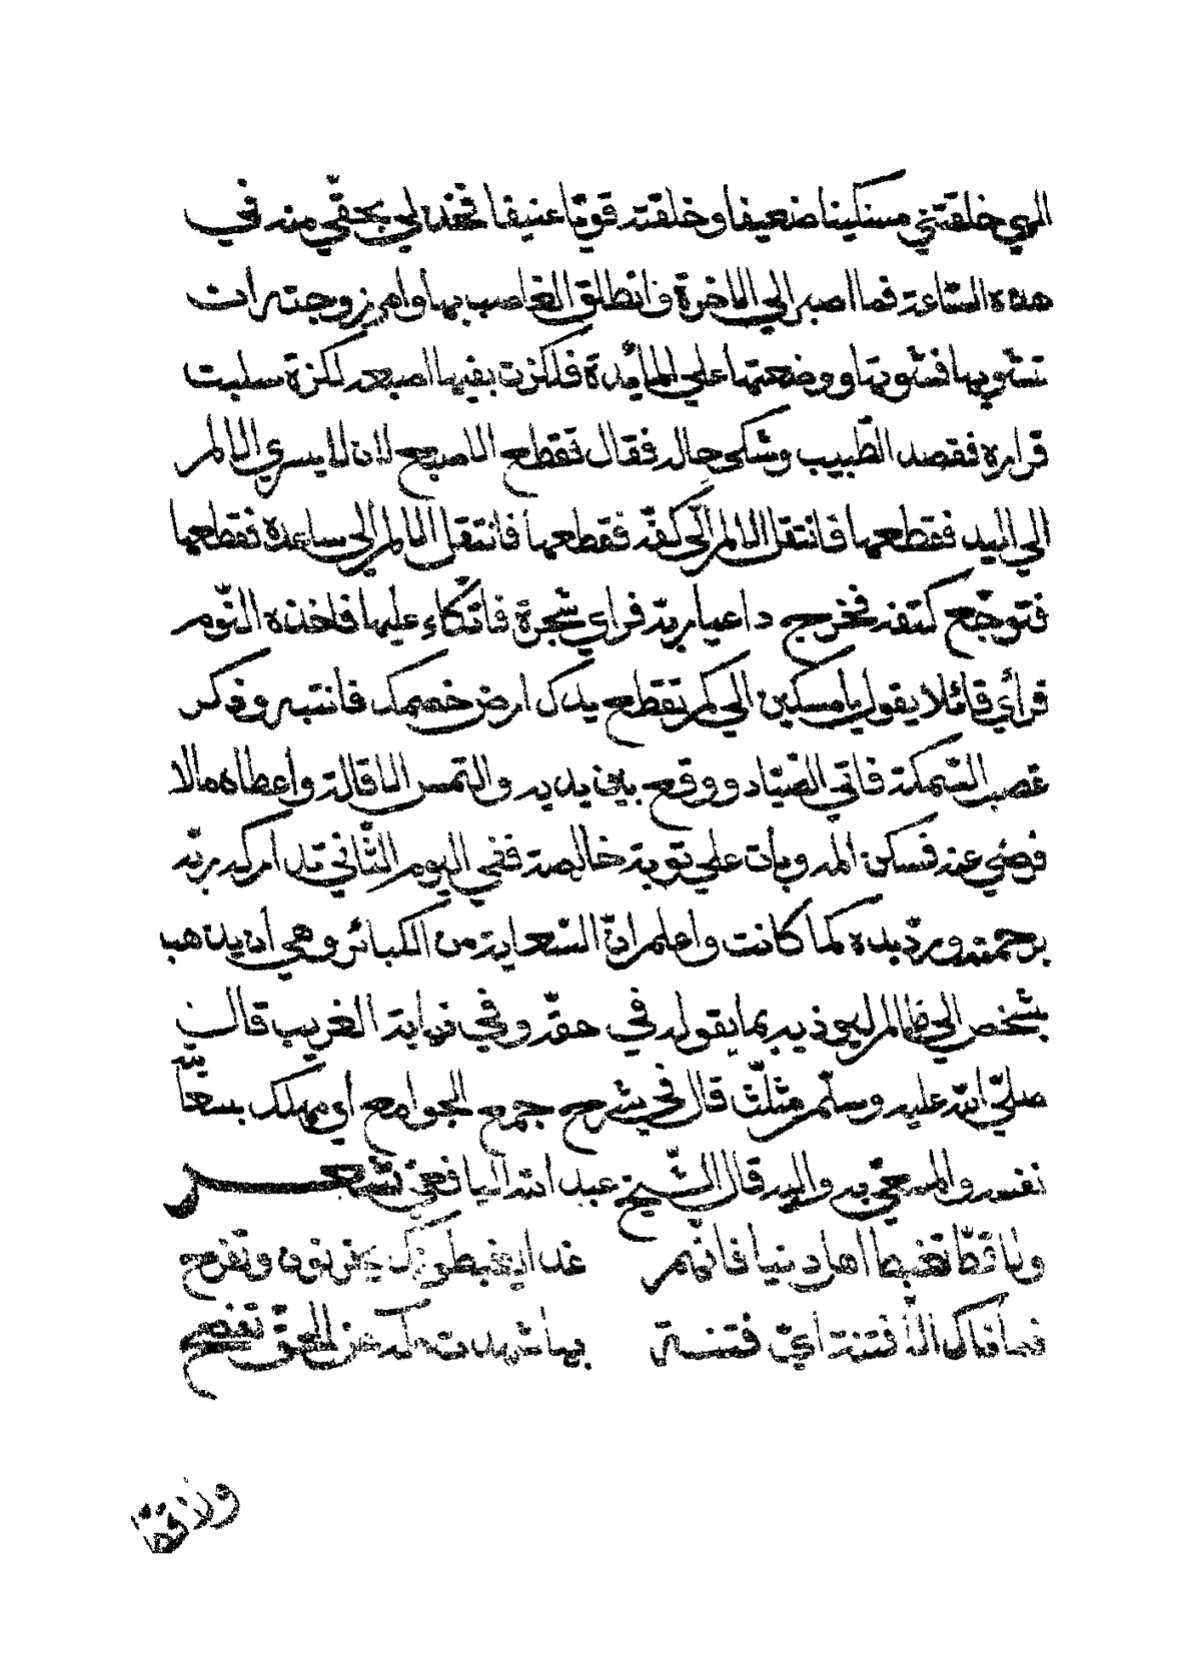 الهي خلقتني مسكينا ضعيفا وخلقته قويّا عنيفا فخذ لي بحقّي منه في
هذه السّاعة فما اصبر الي الاخرة وانطلق الغاصب بها وامر زوجته ان
تشويها فشوتها ووضعتها علي المائدة فلكزت بفيها اصبعه لكزة سلبت
قراره فقصد الطّبيب وشكي حاله فقال تقطع الاصبع لان لا يسري الالم
الي اليد فقطعها فانتقل الالم الي كفّه فقطعها فانتقل الالم الي ساعده فقطعها
فتوجّع كتفه فخرج داعيا ربّه فراي شجرة فاتّكاء عليها فاخذه النّوم
فرأي قائلا يقول يا مسكين الي كم تقطع يدك ارض خصمك فانتبه وفكر
غصب السّمكة فاتي الصّيّاد ووقع بين يديه والتمس الاقالة وأعطاه مالا
فرضي عنه فسكن المه وبات علي توبة خالصة ففي اليوم الثّاني تداركه ربّه
برحمته وردّ يده كما كانت واعلم انّ السّعاية من الكبائر وهي أن يذهب
بشخص الي ظالم ليوذيه بما يقوله في حقّه وفي نهاية الغريب قال النبيّ
صلّي الله عليه وسلّم مثلّث قال في شرح جمع الجوامع أي مهلك بسعايته
نفسه والمسعيّ به واليه قال الشّيخ عبد الله اليافعيّ شعر
ولا قطّ تغبط اهل دنيا فانّهم غدا ان يغبطونك يحزنون وتفرح
فما ذاك الّا فتنة ايّ فتنة بها شهدت عن الحقّ تفصح
ولا قطّ